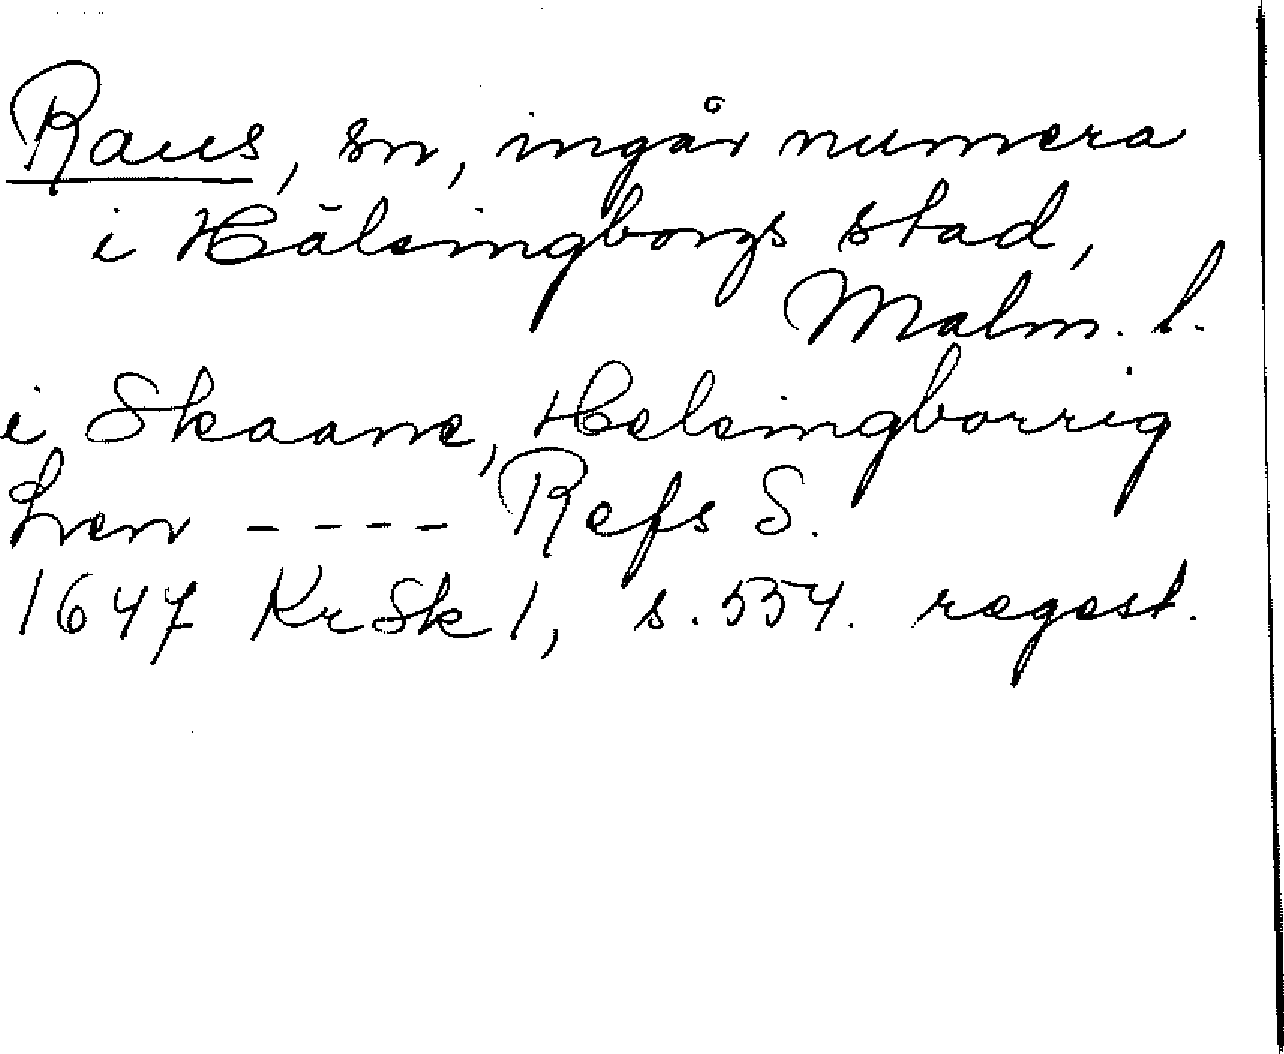 Raus, sn, ingår numera
i Hälsingborgs stad,
Malm. l.
i Skaane, Helsingborrig
Len ---- Refs S.
1647 KrSk 1, s. 554. regest.